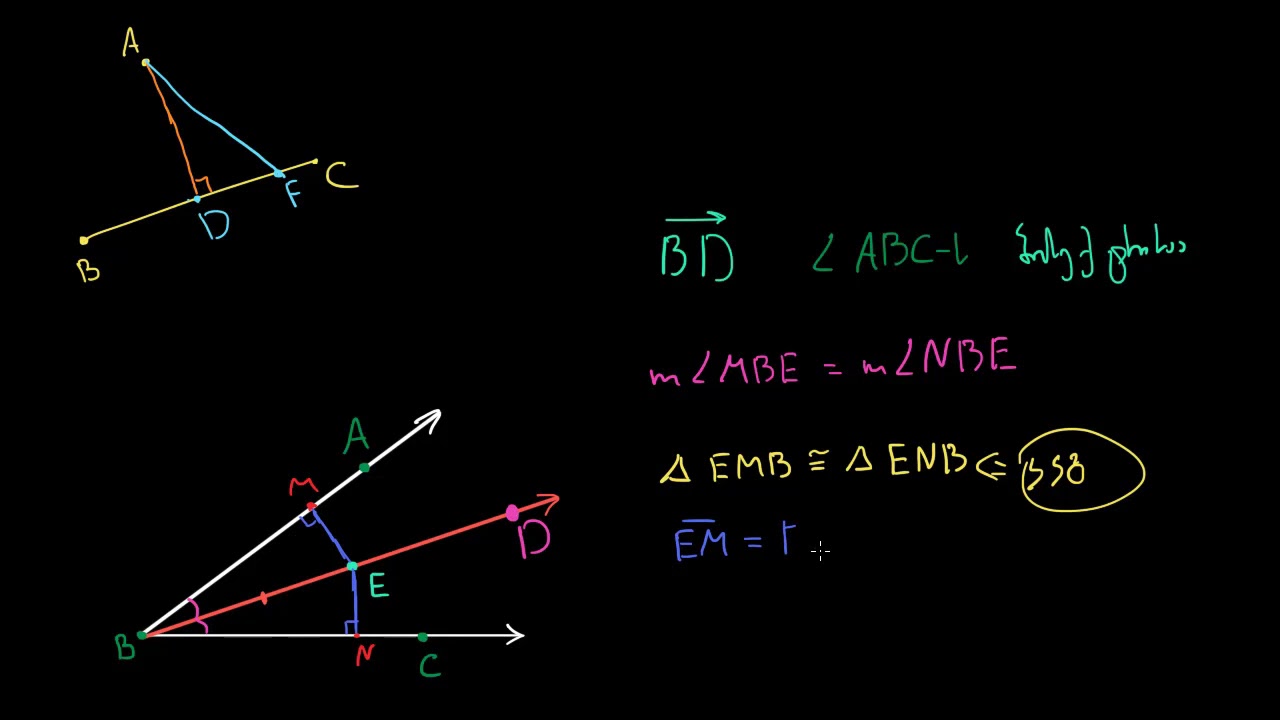 A
C
F
D
B
BD ∠ ABC-ն
m∠MBE = m∠NBE
Δ EMB ≅ Δ ENB ⇐
EM =
A
M
D
E
B
N
C